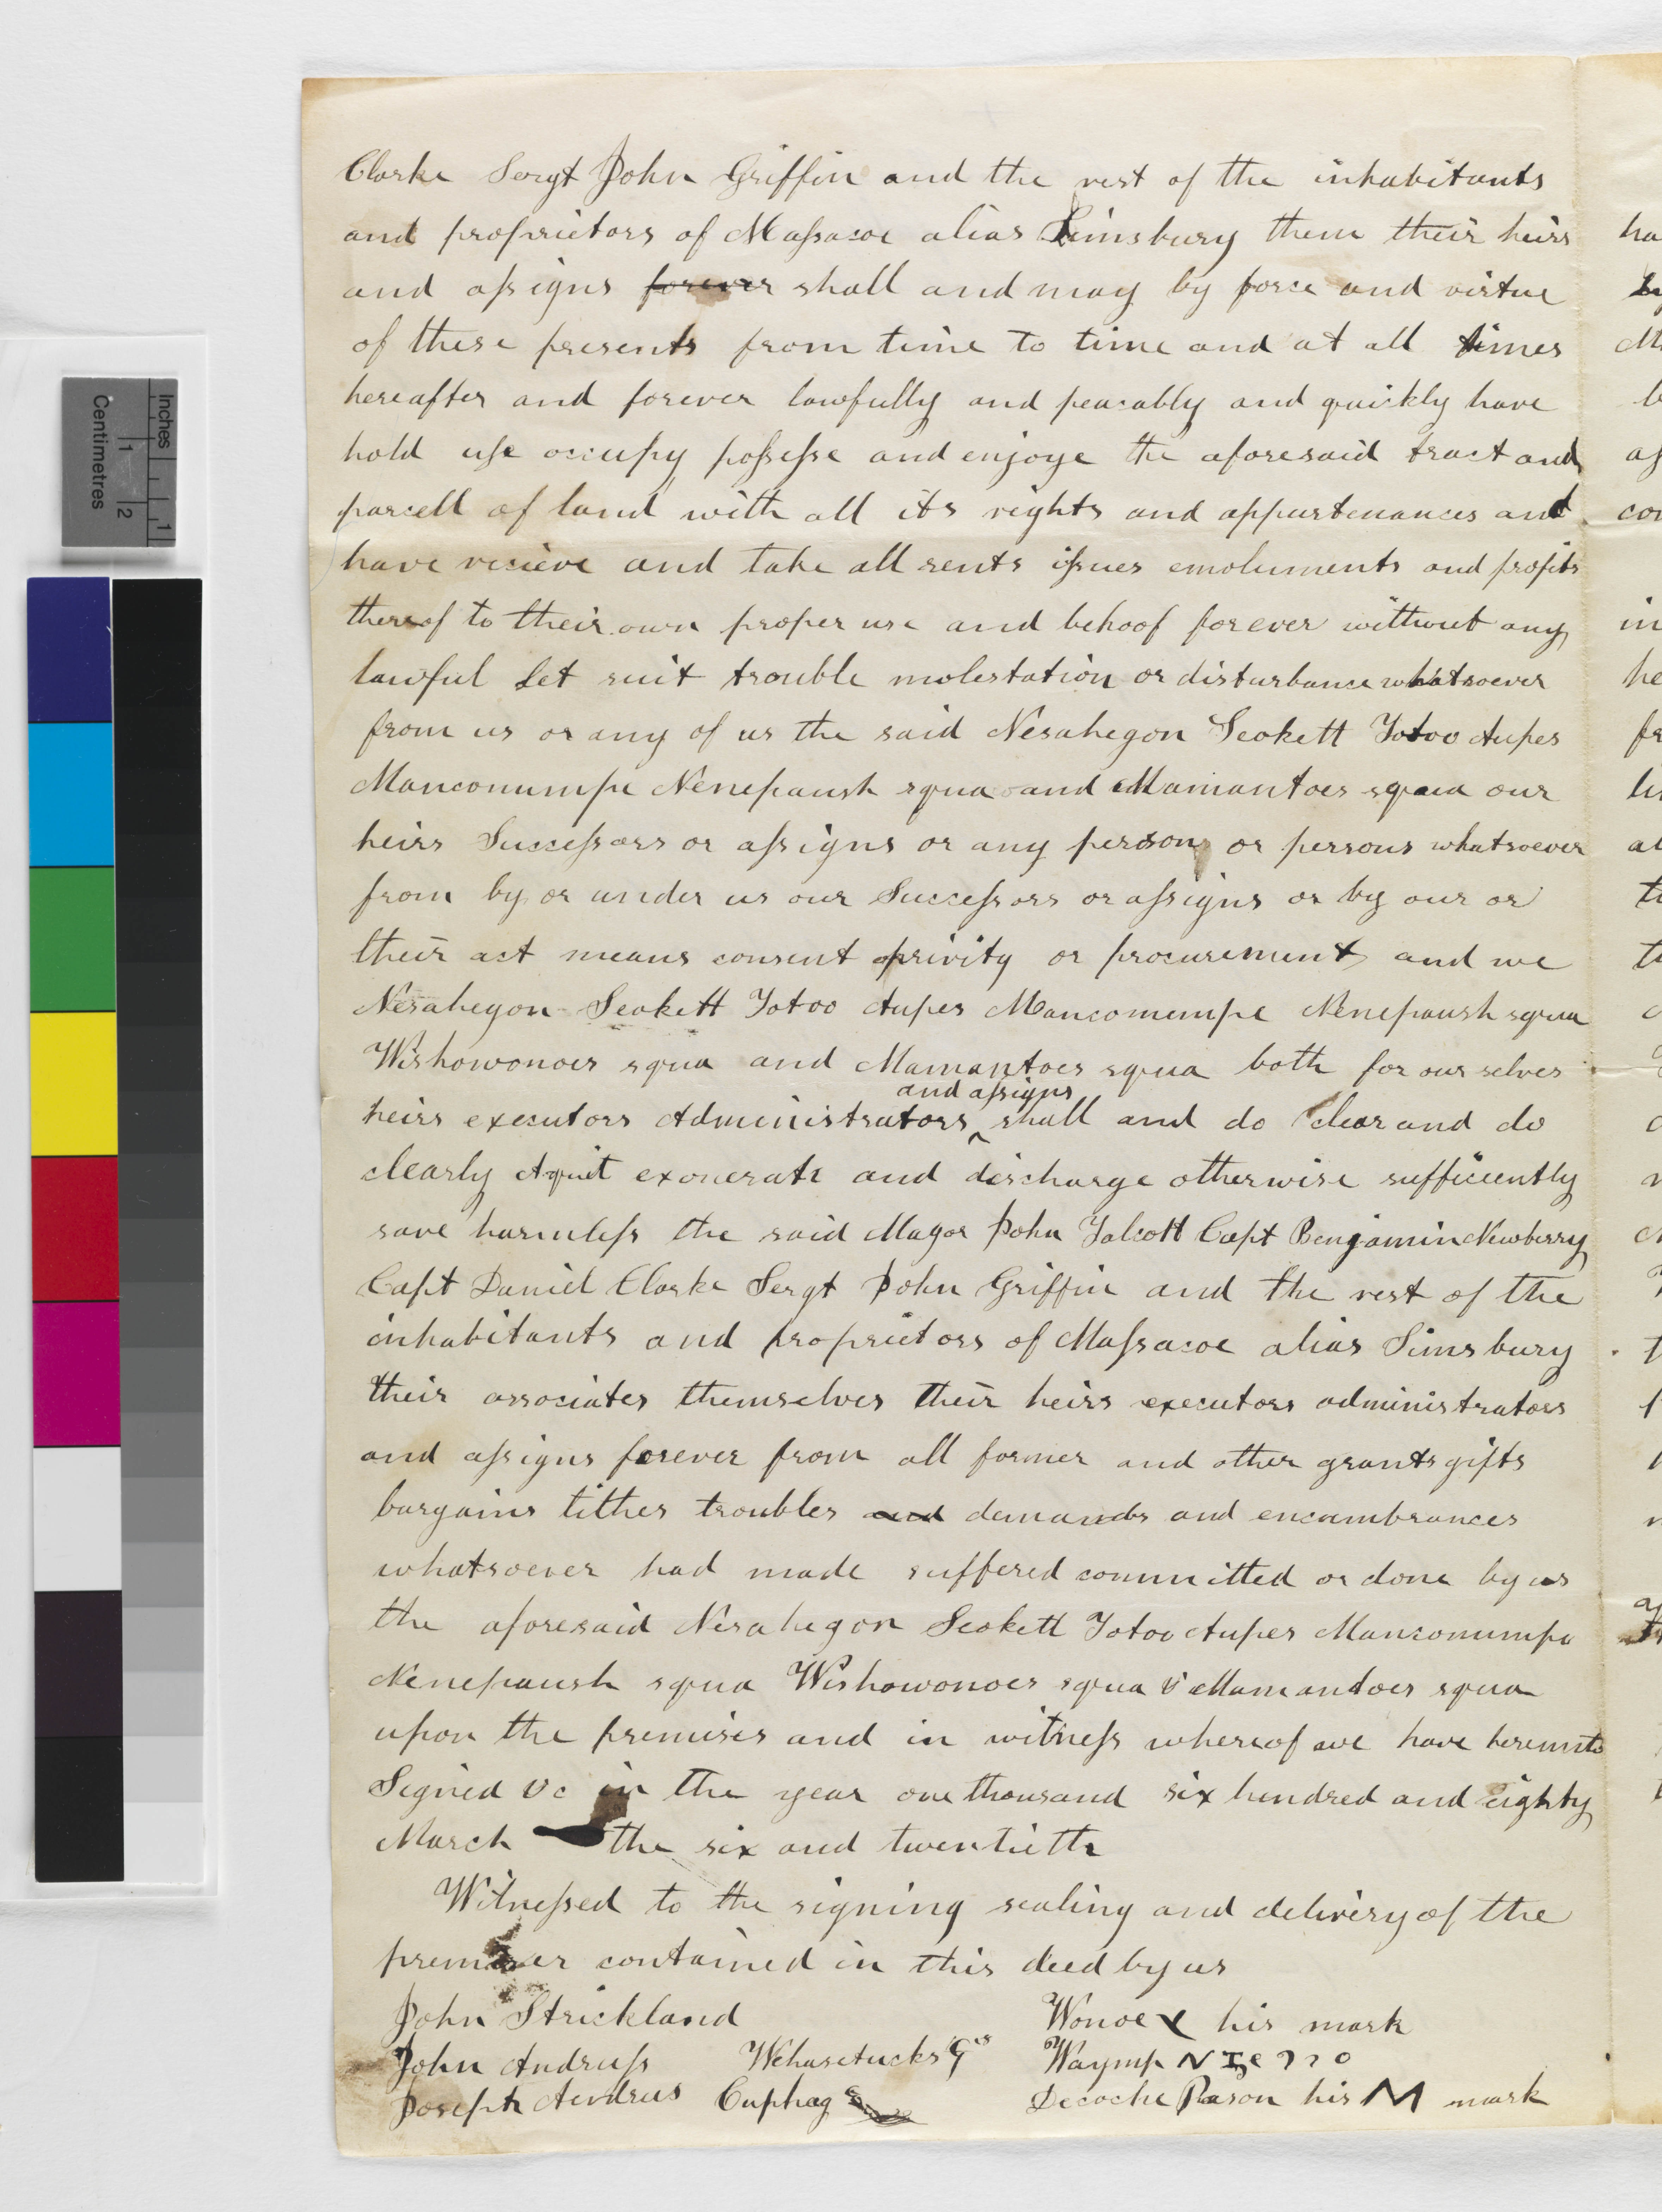 Clarke Sergt John Griffin and the rest of the inhabitants
and proprietors of Massacoe alias Simsbury them their heirs
and assigns forever shall and may by force and virtue
of these presents from time to time and at all times
hereafter and forever lawfully and peacably and quickly have
hold use occupy possesse and enjoye the aforesaid tract and
parcell of land with all its rights and appurtenances and
have recieve and take all rents issues emoluments and profits
thereof to their own proper use and behoof forever without any
lawful let suit trouble molestation or disturbance whatsoever
from us or any of us the said Nesahegon Seokett Totoo Aupes
Manconumpe Nenepaush squa and Mamantoes squa our
heirs Successors or assigns or any person or persons whatsoever
from by or under us our Successors or assigns or by our or
their act means consent privity or procurement and we
Nesahegon Seokett Totoo Aupes Mancomempe Nenepaush squa
Wishowonoes squa and Mamantoes squa both for our selves
heirs executors Administrators and assigns shall and do clear and do
clearly Aquit exonerate and discharge otherwise sufficiently
save harmless the said Magor John Talcott Capt Benjamin Newberry
Capt Daniel Clarke Sergt John Griffin and the rest of the
inhabitants and proprietors of Massacoe alias Simsbury
their associates themselves their heirs executors administrators
and assigns forever from all former and other grants gifts
bargains tithes troubles and demands and encumbrances
whatsoever had made suffered committed or done by us
the aforesaid Nesahegon Seokett Totoo Aupes Manconumpe
Nenepaush squa Wishowonoes squa & Mamandoes squa
upon the premises and in witness whereof we have hereunto
Signed &c in the year one thousand six hundred and eighty
March the six and twentieth
Witnessed to the signing sealing and delivery of the
premises contained in this deed by us
John Strickland Wonoe X his mark
John Andruss Wehasetucks Waymp
Joseph Andrus Cuphag Decoche Pason his M mark